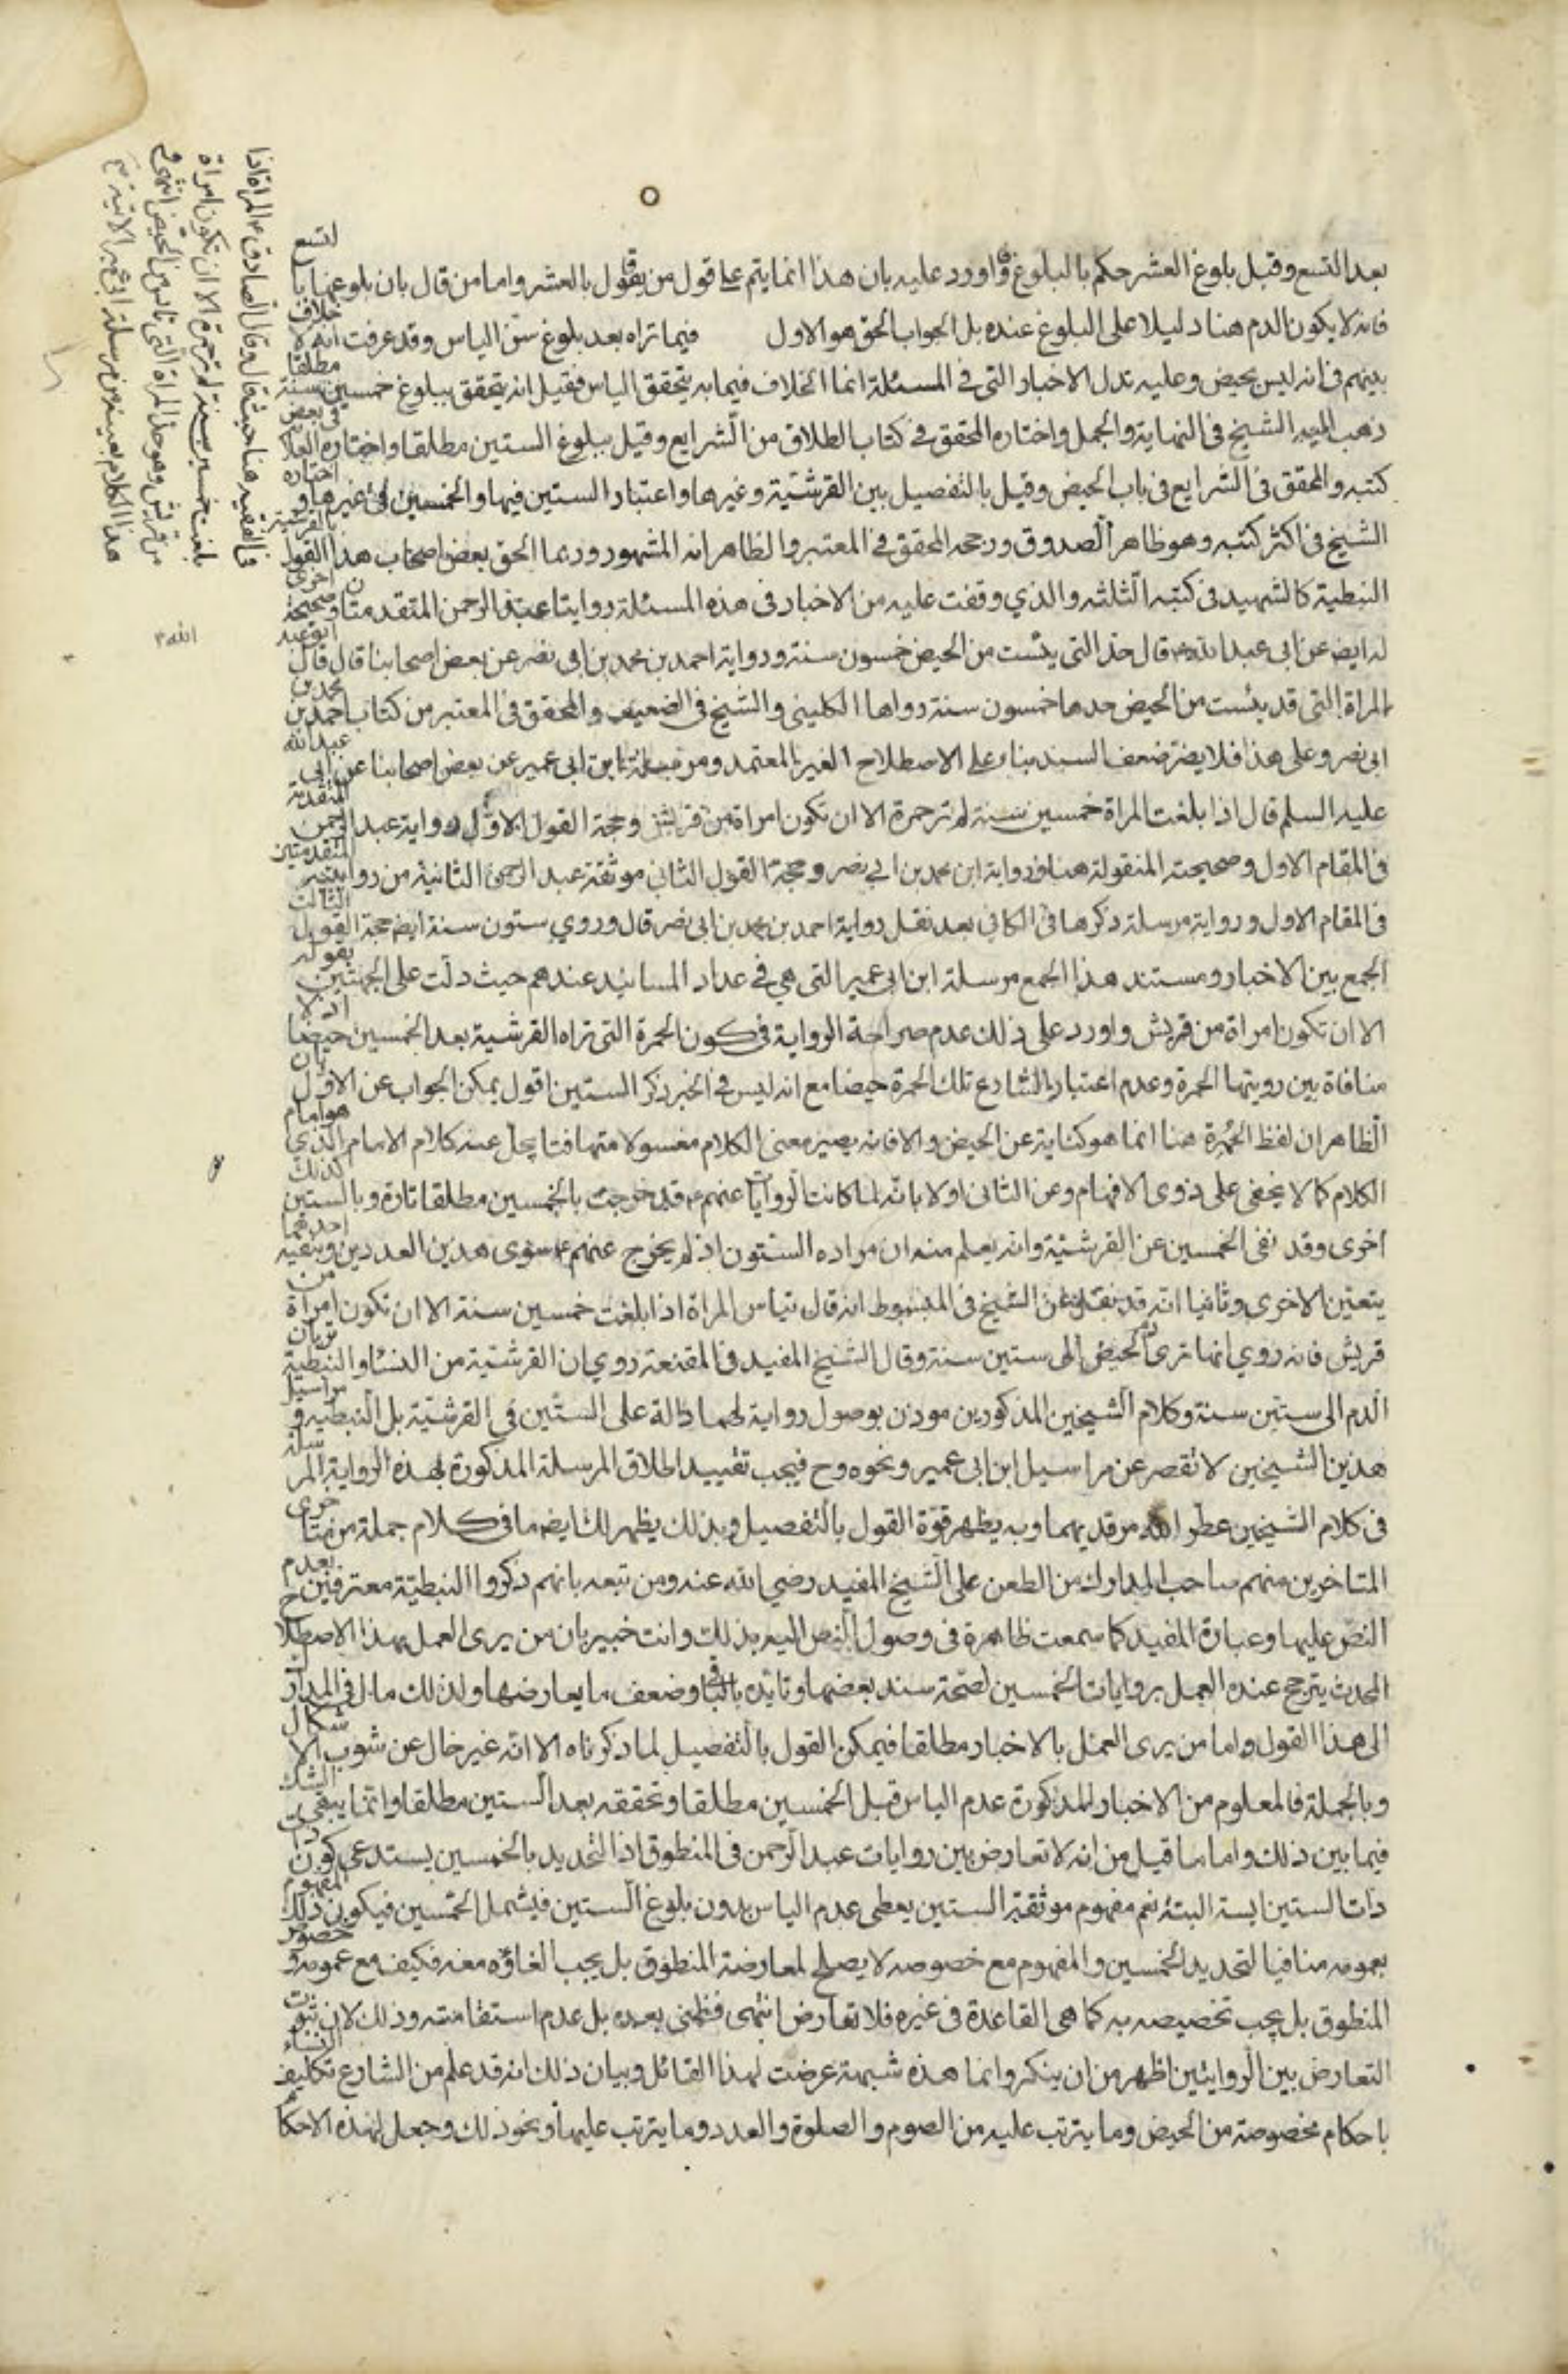 بعد التسع وقبل بلوغ العشر حكم بالبلوغ واورد عليه بان هذا انما يتم على قول من يقول بالعشر واما من قال بان بلوغها بالتسع
فانه لا يكون الدم هنا دليلا على البلوغ عنده بل الجواب الحق هو الاول فيما تراه بعد بلوغ سن الياس وقد عرفت انه لا خلاف
بينهم في انه ليس بحيض وعليه تدل الاخبار التي في المسئلة انما الخلاف فيما به يتحقق الياس فقيل انه يتحقق ببلوغ خمسين سنة مطلقا
ذهب اليه الشيخ في النهاية والجمل واختاره المحقق في كتاب الطلاق من الشرايع وقيل ببلوغ الستين مطلقا واختاره العلا في بعض
كتبه والمحقق في الشرايع في باب الحيض وقيل بالتفصيل بين القرشية وغيرها واعتبار الستين فيها والخمسين في غيرها واختاره
الشيخ في اكثر كتبه وهو ظاهر الصدوق ورجحه المحقق في المعتبر والظاهر انه المشهور وربما الحق بعض اصحاب هذا القول بالقرشية
النبطية كالشهيد في كتبه الثلثة والذي وقفت عليه من الاخبار في هذه المسئلة روايتا عبد الرحمن المتقدمتان وصحيحة اخرى
له ايضا عن ابي عبد الله ع قال حد التي يئست من الحيض خمسون سنة ورواية احمد بن محمد بن ابي نصر عن بعض اصحابنا قال قال ابو عبد الله ع
المراة التي قد يئست من الحيض حدها خمسون سنة رواها الكليني والشيخ في الضعيف والمحقق في المعتبر من كتاب احمد بن محمد بن
ابي نصر وعلى هذا فلا يضر ضعف السند بناء على الاصطلاح الغير المعتمد ومرسلة ابن ابي عمير عن بعض اصحابنا عن ابي عبد الله
عليه السلم قال اذا بلغت المراة خمسين سنة لم تر حمرة الا ان تكون امراة من قريش وحجة القول الاول رواية عبد الرحمن المتقدمة
في المقام الاول وصحيحته المنقولة هنا ورواية ابن محمد بن ابي نصر وحجة القول الثاني موثقة عبد الرحمن الثانية من روايتيه المتقدمتين
في المقام الاول ورواية مرسلة ذكرها في الكافي بعد نقل رواية احمد بن محمد بن ابي نصر قال وروي ستون سنة ايضا حجة القول الثالث
الجمع بين الاخبار ومستند هذا الجمع مرسلة ابن ابي عمير التي هي في عداد المسانيد عندهم حيث دلت على الجهتين بقوله
الا ان تكون امراة من قريش واورد على ذلك عدم صراحة الرواية في كون الحمرة التي تراه القرشية بعد الخمسين حيضا اذ لا
منافاة بين رويتها الحمرة وعدم اعتبار الشارع تلك الحمرة حيضا مع انه ليس في الخبر ذكر الستين اقول يمكن الجواب عن الاول بان
الظاهر ان لفظ الحمرة هنا انما هو كناية عن الحيض والا فانه يصير معنى الكلام مغسولا متهافتا يجل عنه كلام الامام الذي هو امام
الكلام كما لا يخفى على ذوي الافهام وعن الثاني اولا بانه لما كانت الروايات عنهم ع قد خرجت بالخمسين مطلقا تارة وبالستين كذلك
اخرى وقد نفى الخمسين عن القرشية وانه يعلم منه ان مراده الستون اذ لم يخرج عنهم ع سوى هذين العددين وبنفيه احدهما
يتعين الاخرى وثانيا انه قد نقل عن الشيخ في المبسوط انه قال تياس المراة اذا بلغت خمسين سنة الا ان تكون امراة من
قريش فانه روي انها ترى دم الحيض الى ستين سنة وقال الشيخ المفيد في المقنعة روي ان القرشية من النساء والنبطية تريان
الدم الى ستين سنة وكلام الشيخين المذكورين موذن بوصول رواية لهما دالة على الستين في القرشية بل النبطية ومراسيل
هذين الشيخين لا تقصر عن مراسيل ابن ابي عمير ونحوه وح فيجب تقييد اطلاق المرسلة المذكورة بهذه الرواية المرسلة
في كلام الشيخين عطر الله مرقديهما وبه يظهر قوة القول بالتفصيل وبذلك يظهر لك ايضا ما في كلام جملة من متاخري
المتاخرين منهم صاحب المدارك من الطعن على الشيخ المفيد رضي الله عنه ومن تبعه بانهم ذكروا النبطية معترفين بعدم
النص عليها وعبارة المفيد كما سمعت ظاهرة في وصول النص اليه بذلك وانت خبير بان من يرى العمل بهذا الاصطلاح
المحدث يترجح عنده العمل بروايات الخمسين لصحة سند بعضها وتايده بالباقي وضعف ما يعارضها ولذلك مال في المدارك
الى هذا القول واما من يرى العمل بالاخبار مطلقا فيمكن القول بالتفصيل لما ذكرناه الا انه غير خال عن شوب الاشكال
وبالجملة فالمعلوم من الاخبار المذكورة عدم الياس قبل الخمسين مطلقا وتحققه بعد الستين مطلقا وانما يبقى الشك
فيما بين ذلك واما ما قيل من انه لا تعارض بين روايات عبد الرحمن في المنطوق اذ التحديد بالخمسين يستدعي كون
ذات الستين ايسة البتة نعم مفهوم موثقة الستين يعطي عدم الياس بدون بلوغ الستين فيشمل الخمسين فيكون ذلك المفهوم
بعمومه منافيا لتحديد الخمسين والمفهوم مع خصوصه لا يصلح لمعارضة المنطوق بل يجب الغاؤه معه فكيف مع عمومه وخصوص
المنطوق بل يجب تخصيصه به كما هي القاعدة في غيره فلا تعارض انتهى فظني بعده بل عدم استقامته وذلك لان ثبوت
التعارض بين الروايتين اظهر من ان ينكر وانما هذه شبهة عرضت لهذا القائل وبيان ذلك انه قد علم من الشارع تكليف النساء
باحكام مخصوصة من الحيض وما يترتب عليه من الصوم والصلوة والعدد وما يترتب عليها ونحو ذلك وجعل لهذه الاحكام
في الفقيه هنا حيث قال وقال الصادق ع المراة اذا
بلغت خمسين سنة لم تر حمرة الا ان تكون امراة
من قريش وهو حد المراة التي تياس من الحيض انتهى و
هذا الكلام بعينه من مرسلة ابن ابي عمير الاتية